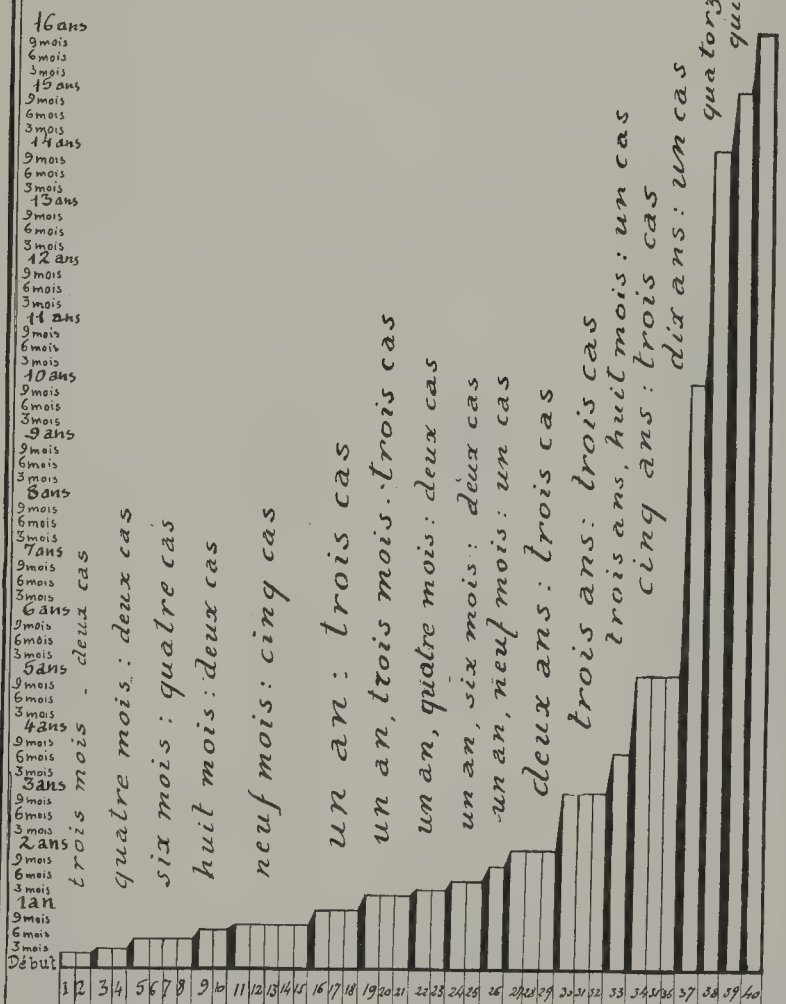 16 ans
9 mois
6 mois
3 mois
15 ans
9 mois
6 mois
3 mois
14 ans
9 mois
6 mois
3 mois
13 ans
9 mois
6 mois
3 mois
12 ans
9 mois
6 mois
3 mois
11 ans
9 mois
6 mois
3 mois
10 ans
9 mois
6 mois
3 mois
9 ans
9 mois
6 mois
3 mois
8 ans
9 mois
6 mois
3 mois
7 ans
9 mois
6 mois
3 mois
6 ans
9 mois
6 mois
3 mois
5 ans
9 mois
6 mois
3 mois
4 ans
9 mois
6 mois
3 mois
3 ans
9 mois
6 mois
3 mois
2 ans
9 mois
6 mois
3 mois
1 an
9 mois
6 mois
3 mois
Début
trois mois - deux cas
quatre mois : deux cas
six mois : quatre cas
huit mois : deux cas
neuf mois : cinq cas
un an : trois cas
un an, trois mois : trois cas
un an, quatre mois : deux cas
un an, six mois : deux cas
un an, neuf mois : un cas
deux ans : trois cas
trois ans : trois cas
trois ans, huit mois : un cas
cinq ans : trois cas
dix ans : un cas
1 2 3 4 5 6 7 8 9 10 11 12 13 14 15 16 17 18 19 20 21 22 23 24 25 26 27 28 29 30 31 32 33 34 35 36 37 38 39 40